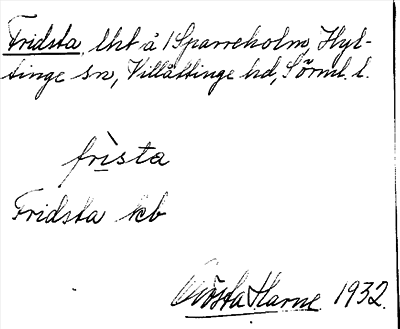 Fridsta, lht å 1 Sparreholm, Hyl-
tinge sn, Villåttinge hd, Sörml. l.
frìsta
Fridsta kb
Gösta Harne 1932.